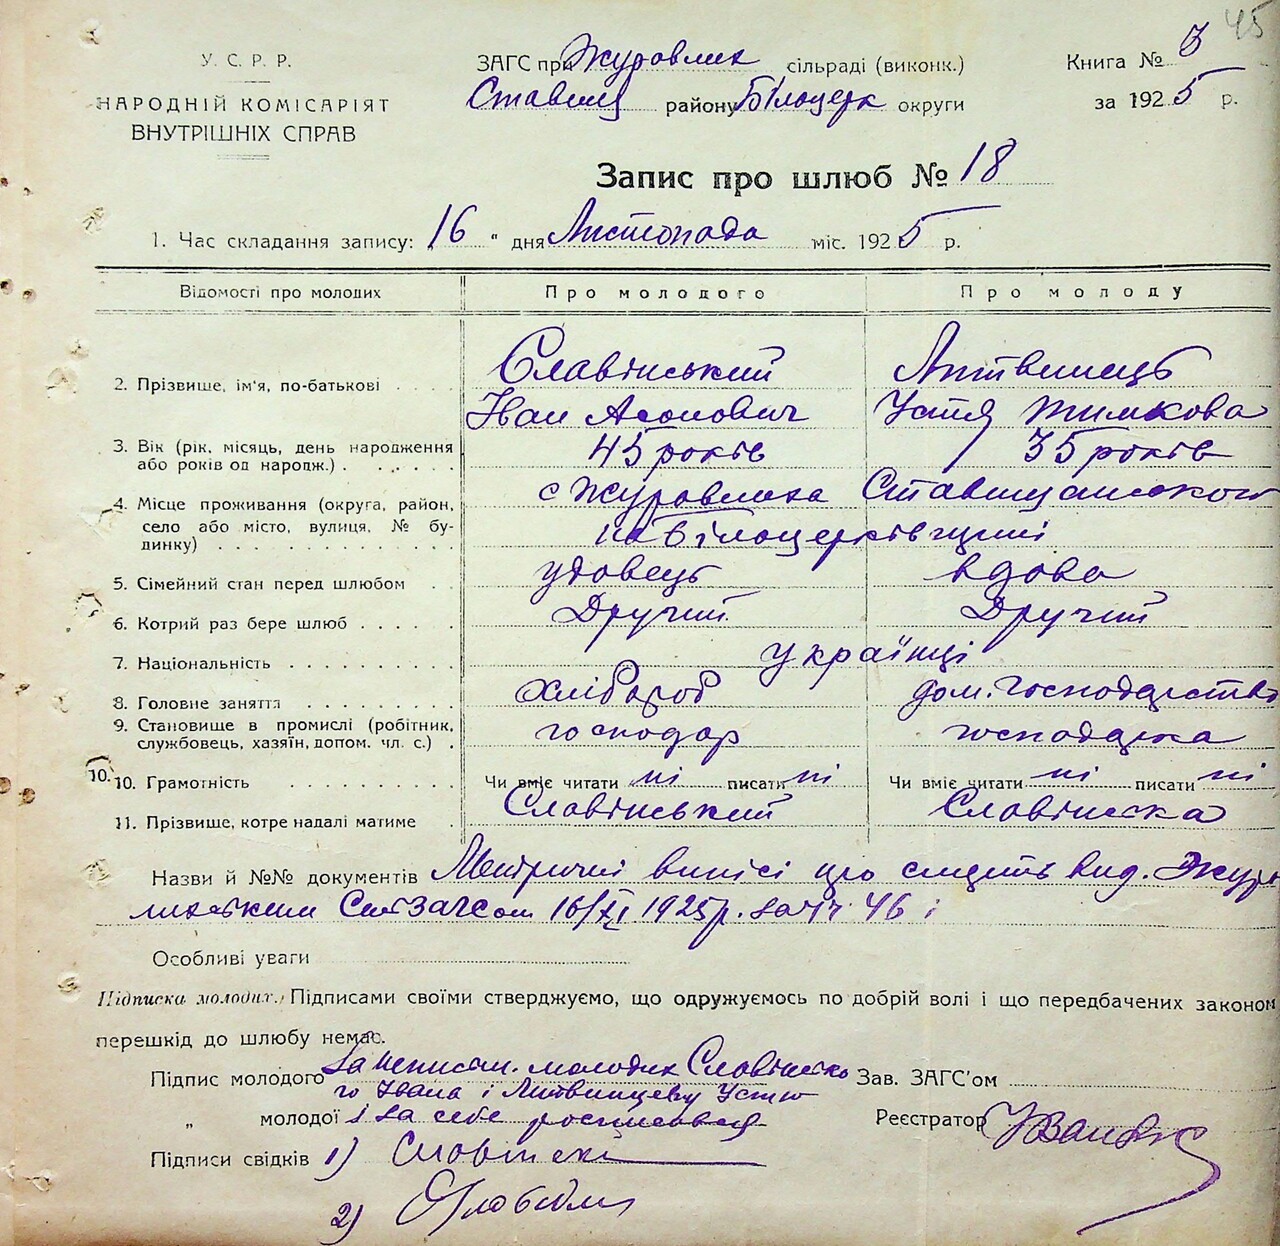 45
У. С. Р. Р.
НАРОДНІЙ КОМІСАРІЯТ
ВНУТРІШНІХ СПРАВ
ЗАГС при Журавлих сільраді (виконк.)
Ставищ району Білоцерк округи
Книга № 3
за 1925 р.
Запис про шлюб № 18
1. Час складання запису: 16 " дня Листопада міс. 1925 р.
Відомості про молодих Про молодого Про молоду
2. Прізвище, ім'я, по-батькові Славінський Литвинець
Іван Устя Тимкова
3. Вік (рік, місяць, день народження 45 років 35 років
або років од народж.)
4. Місце проживання (округа, район, с Журавлиха Ставищанського
село або місто, вулиця, № бу- на Білоцерківщині
динку)
5. Сімейний стан перед шлюбом удовець вдова
6. Котрий раз бере шлюб Другий Другий
7. Національність українці
8. Головне заняття хлібороб дом. господарство
9. Становище в промислі (робітник, господар господарка
службовець, хазяїн, допом. чл. с.)
10. 10. Грамотність Чи вміє читати ні писати ні Чи вміє читати ні писати ні
11. Прізвище, котре надалі матиме Славінський Славінска
Назви й №№ документів Метричні виписі що вид. Журав
16/XI 1925 р. за № 46 і
Особливі уваги
Підписка молодих. Підписами своїми стверджуємо, що одружуємось по добрій волі і що передбачених законом
перешкід до шлюбу немає.
Підпис молодого за неписьм. молодих Славінсько Зав. ЗАГС'ом
го Івана і Литвинцеву Устю
„ молодої і за себе росписався Реєстратор
Підписи свідків 1)
2)